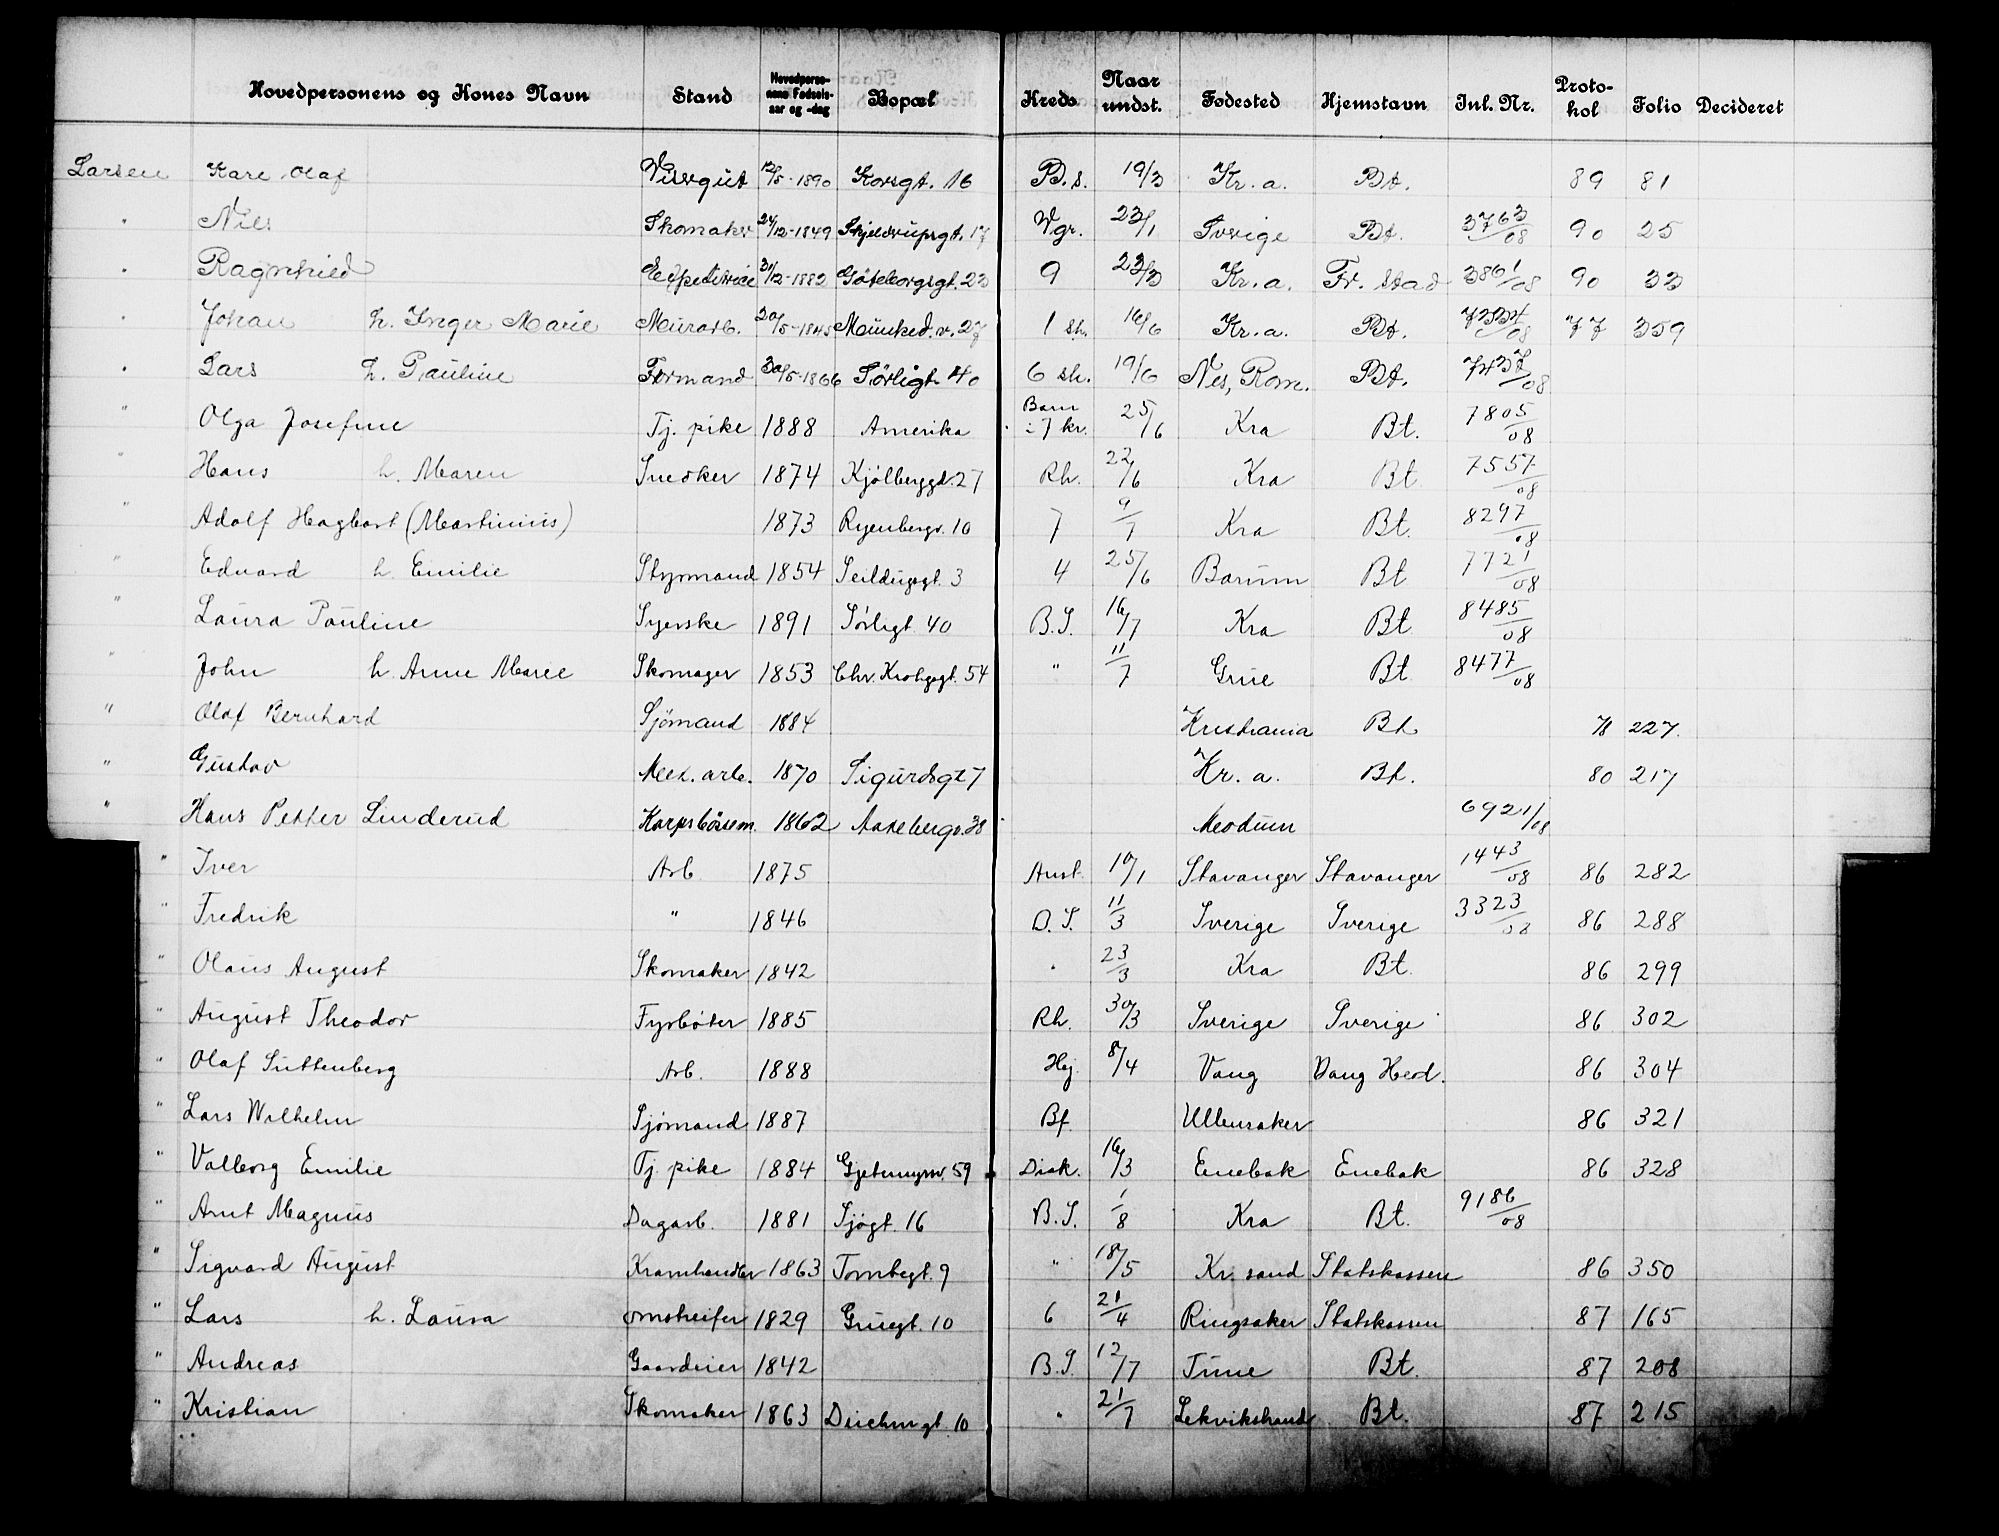 Hovedpersonens og Kones Navn Stand Hovedpersonens Fødsels-aar og -dag Bopæl Kreds Naar undst. Fødested Hjemstavn Inl. Nr. Protokol Folio Decideret
Larsen Kare Olaf Visergut 12/5-1890 Korsgt. 16 B.s. 19/3 Kr.a. Bt. 89 81
" Nils Skomaker 24/12-1849 Skjeldrupsgt. 17 Vgr. 23/1 Sverige Bt. 3763/08 90 25
" Ragnhild 31/12-1882 Göteborgsgt. 23 9 23/3 Kr.a. Fr.stad 3861/08 90 33
" Johan h. Inger Marie Murarb. 20/5-1845 Munked.v. 27 1 sk. 16/6 Kr.a. Bt. 77 359
" Lars h. Pauline Formand 30/5-1866 Sørligt. 40 6 sk. 19/6 Nes, Rom. Bt. 7437/08
" Olga Josefine Tj. pike 1888 Amerika Barn i 7 kr. 25/6 Kra Bt. 7805/08
" Hans h. Maren Snedker 1874 Kjølberggt. 27 Rh. 22/6 Kra Bt 7557/08
" Adolf Hagbart (Martinius) 1873 Ryenbergv. 10 7 9/7 Kra Bt. 8297/08
" Edvard h. Emilie Styrmand 1854 Seildugsgt. 3 4 25/6 Bærum Bt 7721/08
" Laura Pauline Syerske 1891 Sørligt. 40 B.S. 16/7 Kra Bt 8485/08
" John h. Anne Marie Skomager 1853 Chr. Krohgsgt. 54 " 11/7 Grue Bt 8477/08
" Olaf Bernhard Sjømand 1884 Kristiania Bt. 78 227.
" Gustav Mek. arb. 1870 Sigurdsgt 7 Kr.a. Bt. 80 217
" Hans Petter Linderud Korpsbøssem. 1862 Aakebergv. 38 Modum 6921/08
" Iver Arb 1875 Anst. 10/1 Stavanger Stavanger 1443/08 86 282
" Fredrik " 1846 B.S. 11/3 Sverige Sverige 3323/08 86 288
" Olaus August Skomaker 1842 " 23/3 Kra Bt. 86 299
" August Theodor Fyrbøter 1885 Rh. 30/3 Sverige Sverige 86 302
" Olaf Suttenberg Arb. 1888 Hej. 8/4 Vang Vang Hed. 86 304
" Lars Wilhelm Sjømand 1887 Bf. Ullensaker 86 321
" Valborg Emilie Tj. pike 1884 Gjetemyrsv. 59 Diak. 16/3 Enebak Enebak 86 328
" Arnt Magnus Dagarb. 1881 Sjøgt. 16 B.S. 1/8 Kra Bt. 9186/08
" Sigvard August Kramhandler 1863 Tomtegt. 9 " 18/5 Kr.sand Statskassen 86 350
" Lars h. Laura omstreifer 1829 Gruegt. 10 6 21/4 Ringsaker Statskassen 87 165
" Andreas Gaardeier 1842 B.S. 12/7 Tune Bt. 87 208
" Kristian Skomaker 1863 Deichmgt. 10 " 21/7 Bt. 87 215